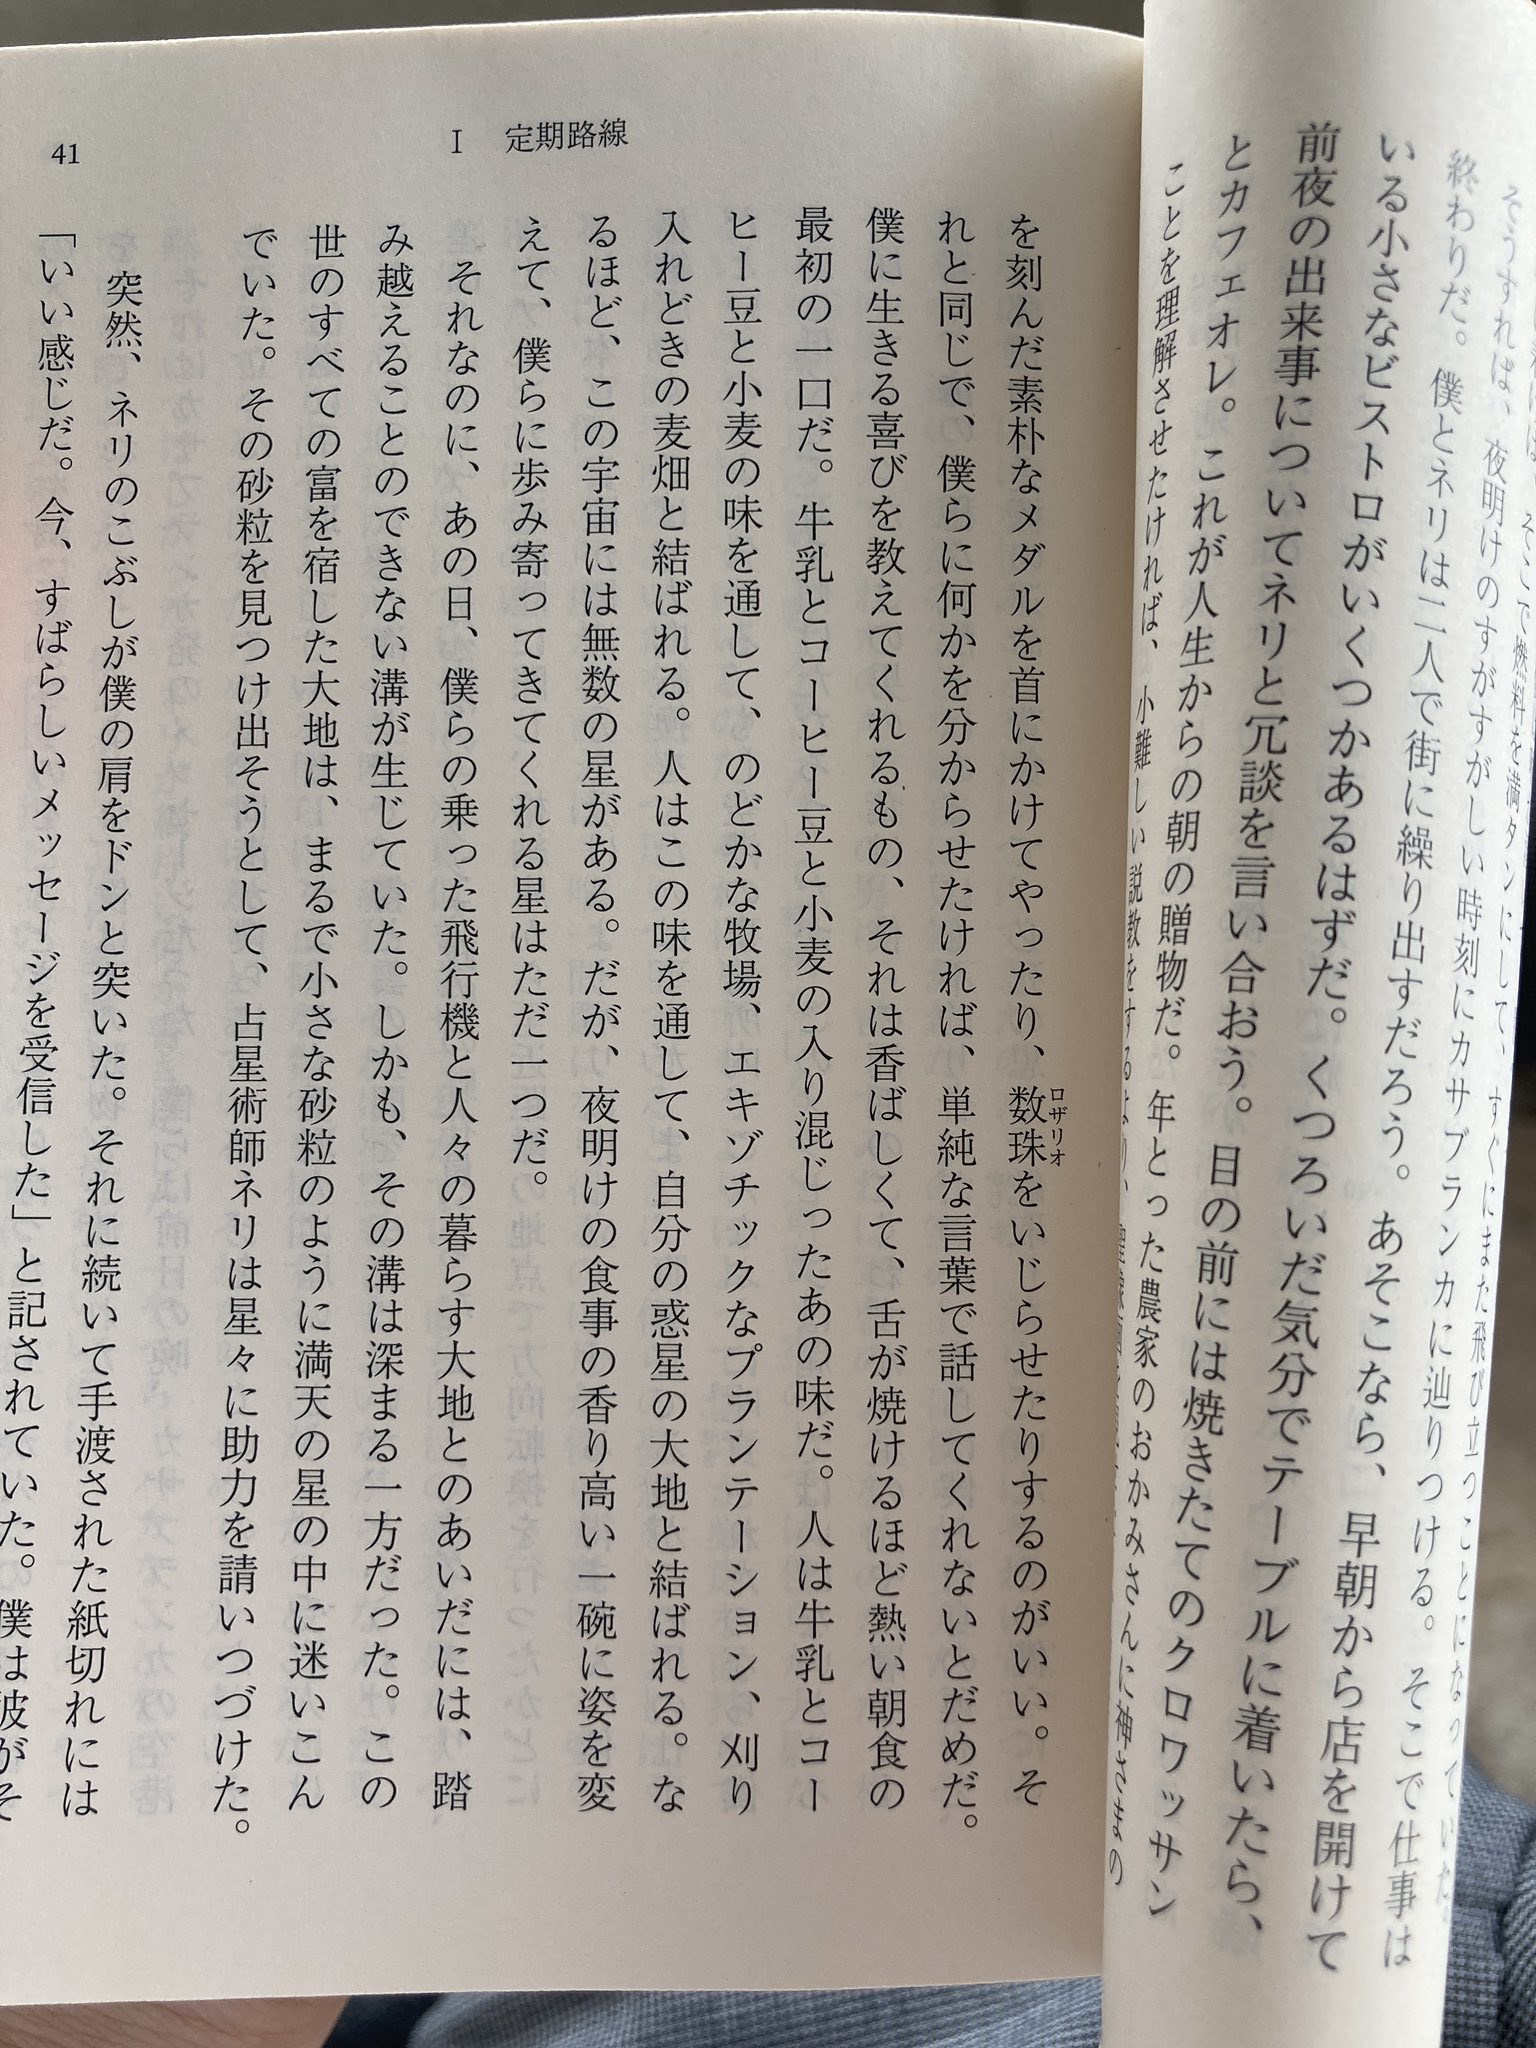 そこで燃料を満タンにして、すぐにまた飛び立つことになっていた。
そうすれば、夜明けのすがすがしい時刻にカサブランカに辿りつける。そこで仕事は
終わりだ。僕とネリは二人で街に繰り出すだろう。あそこなら、早朝から店を開けて
いる小さなビストロがいくつかあるはずだ。くつろいだ気分でテーブルに着いたら、
前夜の出来事についてネリと冗談を言い合おう。目の前には焼きたてのクロワッサン
とカフェオレ。これが人生からの朝の贈物だ。年とった農家のおかみさんに神さまの
ことを理解させたければ、小難しい説教をするより、
I 定期路線
41
を刻んだ素朴なメダルを首にかけてやったり、数珠をいじらせたりするのがいい。そ
ロザリオ
れと同じで、僕らに何かを分からせたければ、単純な言葉で話してくれないとだめだ。
僕に生きる喜びを教えてくれるもの、それは香ばしくて、舌が焼けるほど熱い朝食の
最初の一口だ。牛乳とコーヒー豆と小麦の入り混じったあの味だ。人は牛乳とコー
ヒー豆と小麦の味を通して、のどかな牧場、エキゾチックなプランテーション、刈り
入れどきの麦畑と結ばれる。人はこの味を通して、自分の惑星の大地と結ばれる。な
るほど、この宇宙には無数の星がある。だが、夜明けの食事の香り高い一碗に姿を変
えて、僕らに歩み寄ってきてくれる星はただ一つだ。
それなのに、あの日、僕らの乗った飛行機と人々の暮らす大地とのあいだには、踏
み越えることのできない溝が生じていた。しかも、その溝は深まる一方だった。この
世のすべての富を宿した大地は、まるで小さな砂粒のように満天の星の中に迷いこん
でいた。その砂粒を見つけ出そうとして、占星術師ネリは星々に助力を請いつづけた。
突然、ネリのこぶしが僕の肩をドンと突いた。それに続いて手渡された紙切れには
「いい感じだ。今、すばらしいメッセージを受信した」と記されていた。僕は彼がそ